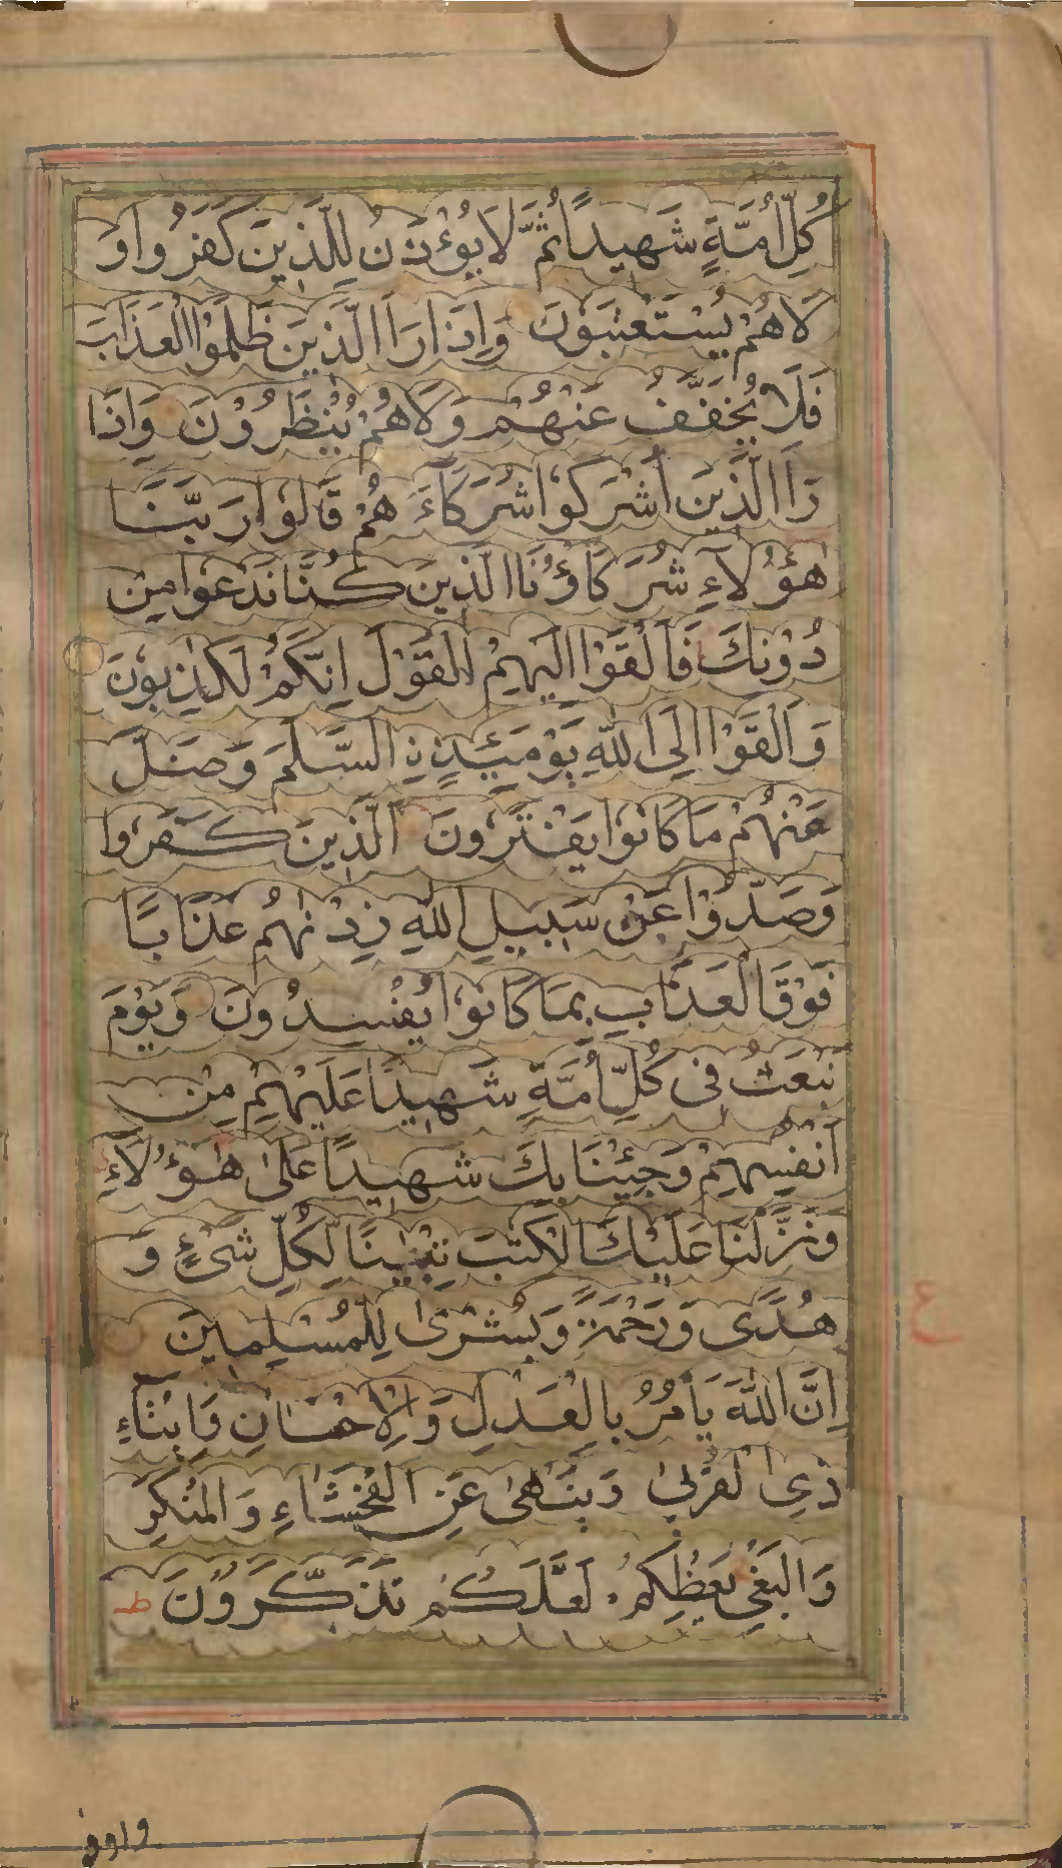 كُلِّ أُمَّةٍ شَهِيدًا ثُمَّ لَا يُؤْذَنُ لِلَّذِينَ كَفَرُوا وَ
لَا هُمْ يُسْتَعْتَبُونَ وَإِذَا رَأَ الَّذِينَ ظَلَمُوا الْعَذَابَ
فَلَا يُخَفَّفُ عَنْهُمْ وَلَا هُمْ يُنْظَرُوْنَ وَإِذَا
رَأَ الَّذِينَ أَشْرَكُوا شُرَكَآءَ هُمْ قَالُوا رَبَّنَا
هٰؤُلَآءِ شُرَكَاؤُنَا الَّذِينَ كُنَّا نَدْعُوا مِنْ
دُوْنِكَ فَأَلْقَوْا إِلَيْهِمُ الْقَوْلَ إِنَّكُمْ لَكٰذِبُونَ
وَأَلْقَوْا إِلَى اللّٰهِ يَوْمَئِذٍ نِ السَّلَمَ وَضَلَّ
عَنْهُمْ مَا كَانُوا يَفْتَرُونَ الَّذِينَ كَفَرُوا
وَصَدُّوْا عَنْ سَبِيلِ اللّٰهِ زِدْنٰهُمْ عَذَابًا
فَوْقَ الْعَذَابِ بِمَا كَانُوا يُفْسِدُونَ وَيَوْمَ
نَبْعَثُ فِى كُلِّ أُمَّةٍ شَهِيدًا عَلَيْهِمْ مِنْ
أَنْفُسِهِمْ وَجِئْنَا بِكَ شَهِيدًا عَلٰى هٰؤُلَآءِ
وَنَزَّلْنَا عَلَيْكَ الْكِتٰبَ تِبْيٰنًا لِّكُلِّ شَىْءٍ وَ
هُدًى وَرَحْمَةً وَبُشْرٰى لِلْمُسْلِمِينَ
ع
إِنَّ اللّٰهَ يَأْمُرُ بِالْعَدْلِ وَالْإِحْسَانِ وَإِيْتَآءِ
ذِى الْقُرْبٰى وَيَنْهٰى عَنِ الْفَحْشَاءِ وَالْمُنْكَرِ
وَالْبَغْىِ يَعِظُكُمْ لَعَلَّكُمْ تَذَكَّرُوْنَ ط
واوفوا